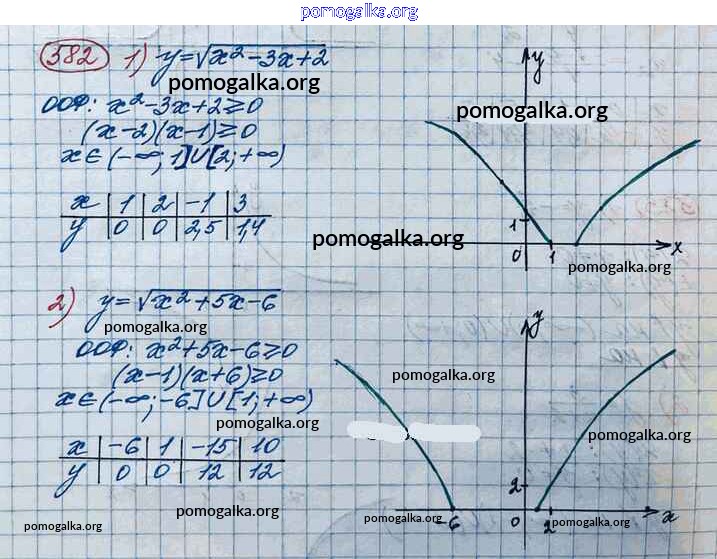 pomogalka.org
582 1) y=√x²-3x+2
pomogalka.org
ООФ: x²-3x+2⩾0
(x-2)(x-1)⩾0
x∈(-∞; 1]∪[2; +∞)
x | 1 | 2 | -1 | 3
y | 0 | 0 | 2,5 | 1,4
pomogalka.org
y
pomogalka.org
1
0 1 x
pomogalka.org
2) y=√x²+5x-6
pomogalka.org
ООФ: x²+5x-6⩾0
(x-1)(x+6)⩾0
x∈(-∞; -6]∪[1; +∞)
pomogalka.org
x | -6 | 1 | -15 | 10
y | 0 | 0 | 12 | 12
pomogalka.org
pomogalka.org
y
pomogalka.org
pomogalka.org
2
-6 0 2 x
pomogalka.org
pomogalka.org